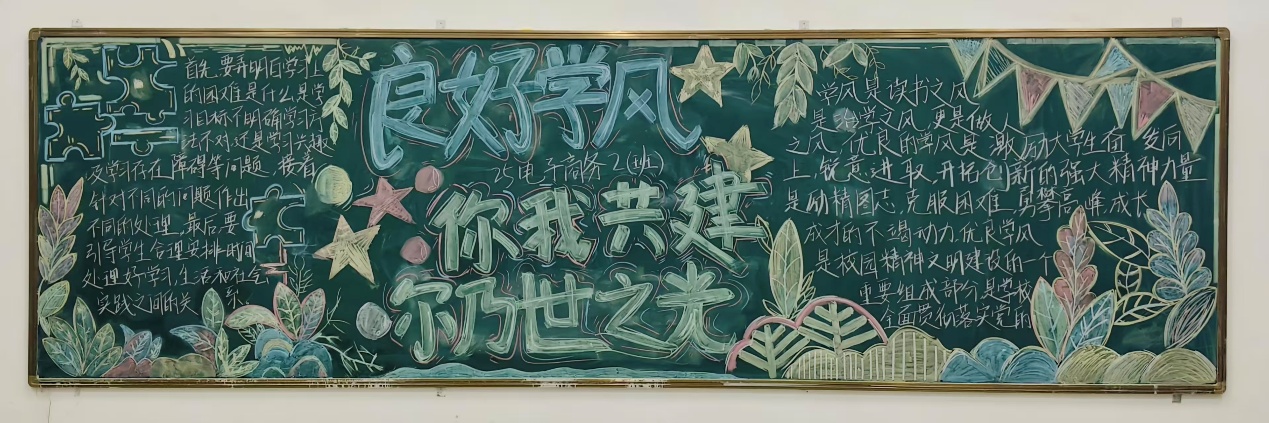 首先,要弄明白学习上
的困难是什么,是学
习目标不明确,学习方
法不对,还是学习兴趣
及学习存在障碍等问题,接着
针对不同的问题作出
不同的处理,最后要
引导学生合理安排时间
处理好学习,生活和社会
实践之间的关系.
良好学风
25电子商务2(班)
你我共建
尔乃世之光
学风是读书之风
是治学之风,更是做人
之风,优良的学风是激励大学生奋发向
上,锐意进取,开拓创新的强大精神力量
是励精图志,克服困难,勇攀高峰,成长
成才的不竭动力,优良学风
是校园精神文明建设的一个
重要组成部分,是学校
全面贯彻落实党的